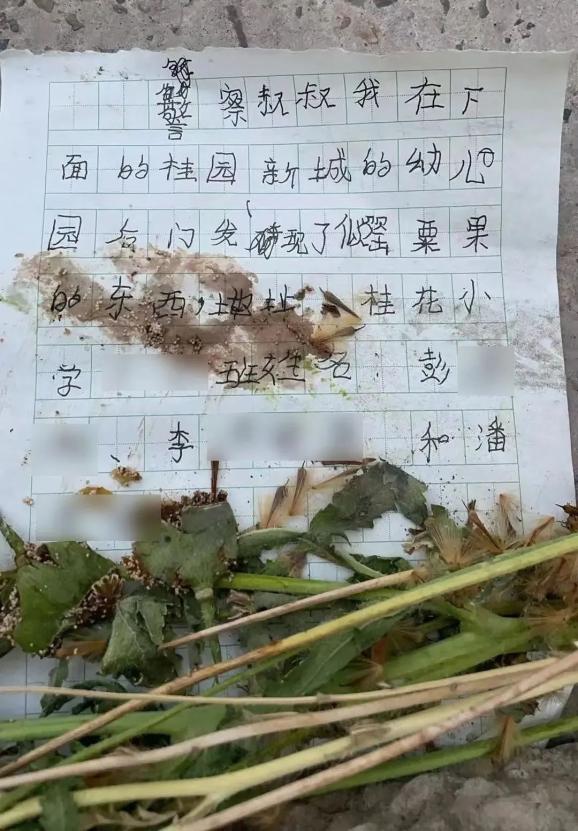 警察叔叔我在下
面的桂园新城的幼儿
园右门发现了似罂粟果
的东西，地址 桂花小
学 班 名 彭
、李 和潘